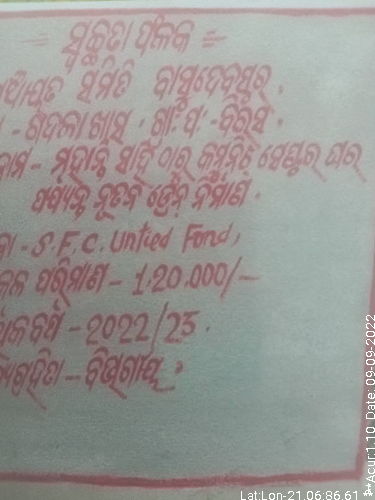 ସ୍ୱଚ୍ଛତା ଫଳକ
ପଞ୍ଚାୟତ ସମିତି ବାସୁଦେବପୁର,
ଗ୍ରା: ପ: - ବିରସ
ନାମ - ମହାନ୍ତି ସାହି ଠାରୁ କମ୍ୟୁନିଟି ସେଣ୍ଟର ଘର
ପର୍ଯ୍ୟନ୍ତ ନୂତନ ଡ୍ରେନ୍ ନିର୍ମାଣ.
ନା - S.F.C. United Fond,
କଳ ପରିମାଣ - 1,20,000/-
ଥିକ ବର୍ଷ - 2022/23.
ର୍ଯ୍ୟଗ୍ରହିତା - ବିଭାଗୀୟ.
Lat:Lon-21.06:86.61 **Acur:1.10 Date: 09-09-2022